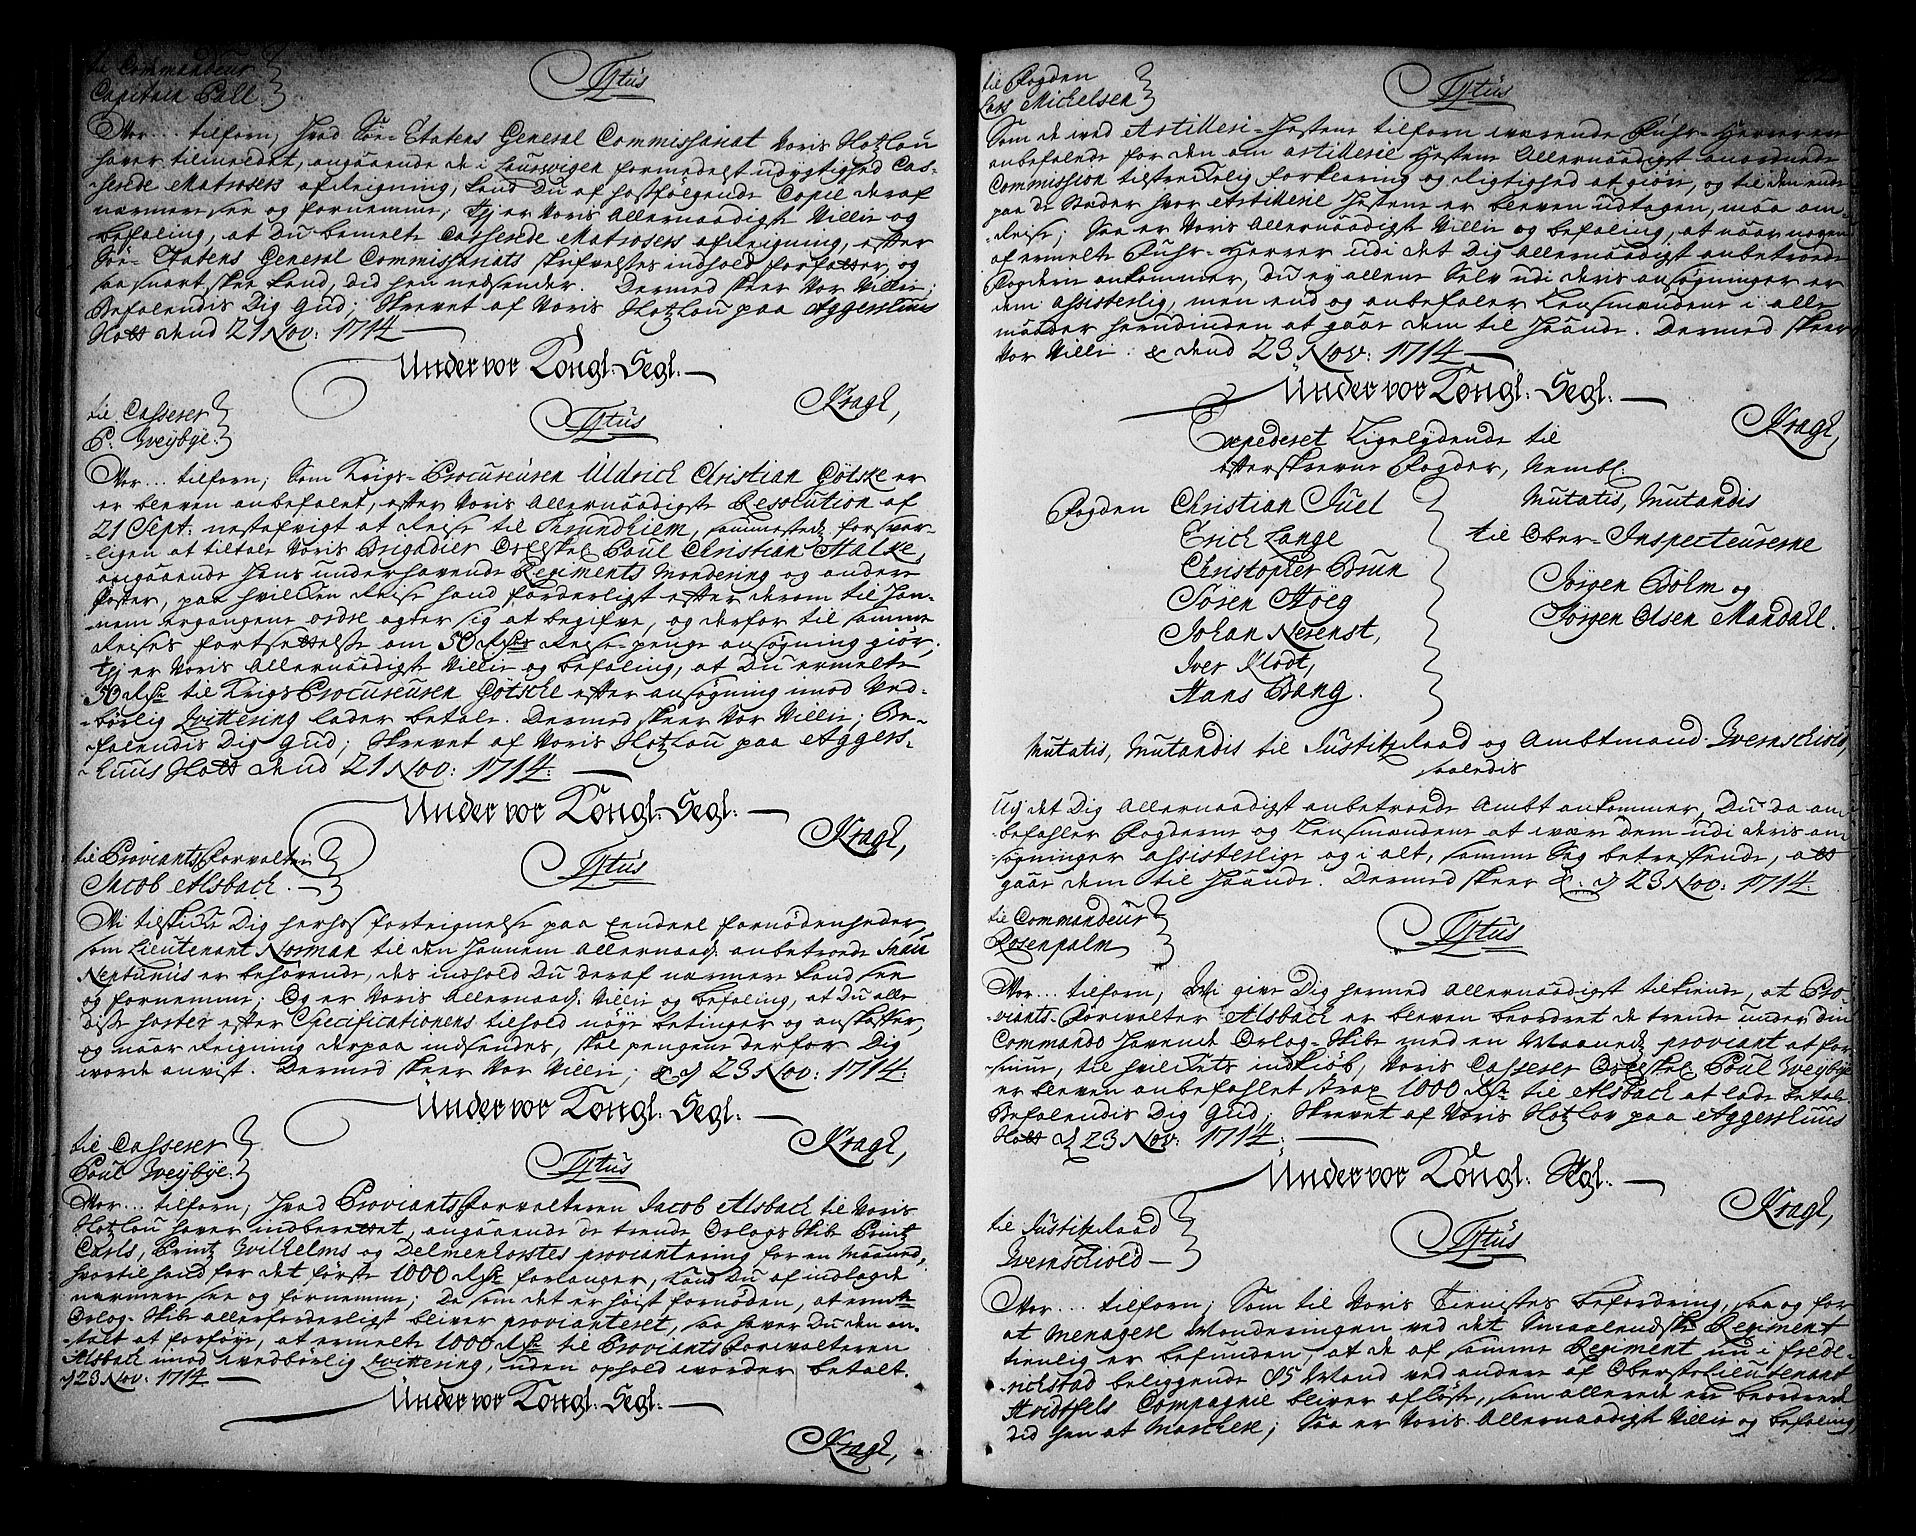 til Commandeur
Capitain Pall.
Ftus
Vor... tilforn; Hvad Søe Etatens General Commissariat Voris Hotzlou
haver tilmeldet, angaaende de i Laurwigen formedelst udygtighed Cas-
-serede Matrosers afreigning, kand Du af hosfølgende Copie deraf
nærmere see og fornemme; Thj er Voris Allernaadigst Villie og
befaling, at Du bemelte Casserede Matrosers afreigning, efter
Søe-Etatens General Commissariats skrifvelses indhold forfatter, og
saa snart, skee kand, did hen nedsender. Dermed skeer Vor Villie;
Befalendis Dig Gud; Skrevet af Voris Hotzlou paa Aggershuus
Slott dend 21 Nov: 1714
Under vor Kongl. Segl.
Kragh,
til Casserer
P. Weybye.
Ftus
Vor... tilforn; Som Krigs-Procureuren Uldrich Christian Götske er
er bleven anbefalet, efter Voris Allernaadigste Resolution af
21 Sept: nestafvigt at Reise til Trundhiem, sammestedz forsvar-
-ligen at tiltale Voris Brigadier Poul Christian Stalke,
angaaende Hans underhavende Regiments Mondering og andere
Poster, paa hvilken Reise hand forderligst efter derom til Han-
nem ergangene ordre agter sig at begifve, og derfor til samme
Reises fortsettelse om 50 Rdr Reise-penge ansøgning giør;
Thj er Voris Allernaadigste Villie og befaling, at Du ermelte
50 Rdr til Krigs Procureuren Götsche efter ansøgning imod Ved-
-børlig Qvittering lader betale. Dermed skeer Vor Villie; Be-
-falendis Dig Gud; Skrevet af Voris Hotzlou paa Aggers-
-huus Slott dend 21 Nov: 1714.
Under vor Kongl. Segl.
Kragh,
til Proviants Forvalter
Jacob Alsbach.
Ftus
Vi tilskicke Dig herhos fortegnelse paa Endeel fornödenheder,
som Lieutenant Norman til den Hannem Allernaad: anbetroede Snau
Neptunus er behøvende, des indhold Du deraf nærmere kand see
og fornemme; Og er Voris Allernaad: Villie og befaling, at Du alle
disse poster efter Specificationens tilhold nøye betinger og anskaffer,
og naar Reigning derpaa indsendes, skal pengene derfor Dig
worde anvist. Dermed skeer Vor Villie; &c d 23 Nov: 1714.
Under vor Kongl. Segl.
Kragh,
til Casserer
Poul Weybye.
Ftus
Vor... tilforn; Hvad Proviants Forvalteren Jacob Alsbach til Voris
Hotzlou haver indberettet, angaaende de trende Orlogs Skibe Printz
Carls, Printz Wilhelms og Delmenhorstes proviantering for en Maaned,
hvortil hand for det første 1000 Rdr forlanger, kand Du af indlagde
nærmere see og fornemme; Da som det er høist fornöden, at ermte
Orlog-Skibe allerforderligst bliver provianteret, saa haver Du den an-
-stalt at forføye, at ermelte 1000 Rdr til Proviants Forvalteren
Alsbach imod wedbørlig Qvittering, uden ophold worder betalt.
d 23 Nov: 1714
Under vor Kongl. Segl.
Kragh,
til Fogden
Lars Michelsen
Ftus
Som de wed Artilleri-Hestene tilforn wærende Fuhr-Herrer ere
anbefalede for den om Artillerie Hestene Allernaadigst anordnede
Commission tilstrekelig forklaring og Rigtighed at giøre, og til den ende
paa de Steder hvor Artillerie Hestene er bleven udtagen, maa om-
-Reise; Saa er Voris Allernaadigst Villie og befaling, at naar nogen
af ermelte Fuhr-Herrer udi det Dig Allernaadigst anbetroede
Fogderie ankommer, Du ey allene Selv udi deris ansøgninger er
dem assisterlig, men end og anbefaler Lensmændene i alle
maader herudinden at gaae dem til Haande. Dermed skeer
Vor Villie: &c dend 23 Nov: 1714
Under vor Kongl. Segl.
Kragh,
Expederet Ligelydende til
efterskrevne Fogder, Nembl.
Fogden Christian Juel
Erich Lange
Christopher Brun
Soren Høeg
Johan Nerenst,
Iver Klodt,
Hans Bang.
Mutatis, Mutandis
til Ober-Inspecteurerne
Jörgen Bölm og
Jörgen Olsen Mandall.
Mutatis, Mutandis til Justitz Raad og Ambtmand Wernschiold,
saaledis
Udj det Dig Allernaadigst anbetroede Ambt ankommer, Du da an-
-befahler Fogderne og Lensmændene at være dem udi deris an-
-søgninger assisterlige og i alt, samme Sag betreffende, att
gaae dem til Haande. Dermed skeer &c. d 23 Nov: 1714.
til Commandeur
Rosenpalm
Ftus
Vor... tilforn; Wi give Dig hermed Allernaadigst tilkiende, at Pro-
-viants-Forvalter Alsbach er bleven beordret de trende under din
Commando havende Orlog-Skibe med en Maaneds proviant at for-
-siune, til hvilkets indkiöb, Voris Casserer Poul Weybye
er bleven anbefallet strax 1000 Rdr til Alsbach at lade betale.
Befalendis Dig Gud; Skrevet af Voris Hotzlov paa Aggershuus
Slott d 23 Nov: 1714.
Under vor Kongl. Segl.
Kragh,
til Justitz Raad
Wernschiold
Ftus
Vor... tilforn; Som til Voris Tienistes befordring, saa og for
at menagere Monderingen ved det Smaalendske Regiment
tienlig er befunden, at de af samme Regiment nu i Frede-
-richstad beliggende 85 Mand ved andere af Oberstelieutenant
Hvidtfels Compagnie bliver afløste, som allerede er beordrede
did hen at Marchere; Saa er Voris Allernaadigst Villie og befaling,